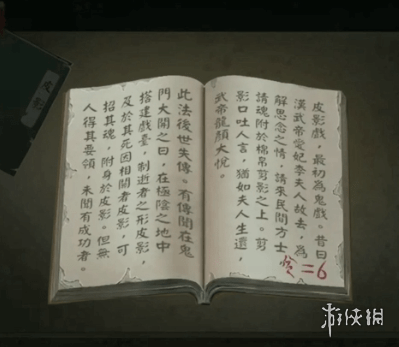 皮影戲，最初為鬼戲。昔日
漢武帝愛妃李夫人故去，為
解思念之情，請來民間方士
請魂附於棉帛剪影之上。剪
影口吐人言，猶如夫人生還，
武帝龍顏大悅。
=6
此法後世失傳。有傳聞在鬼
門大開之日，在極陰之地中
搭建戲臺，制逝者之形皮影，
及於其死因相關者皮影，可
招其魂，附身於皮影。但無
人得其要領，未聞有成功者。
皮影
游侠網